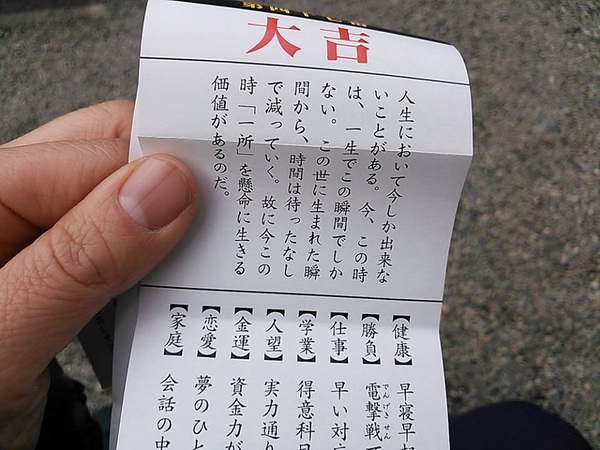 大吉
人生において今しか出来な
いことがある。今、この時
は、一生でこの瞬間でしか
ない。この世に生まれた瞬
間から、時間は待ったなし
で減っていく。故に今この
時「一所」を懸命に生きる
価値があるのだ。
【健康】早寝早
【勝負】電撃戦で
【仕事】早い対応
【学業】得意科目
【人望】実力通り
【金運】資金力が
【恋愛】夢のひと
【家庭】会話の中